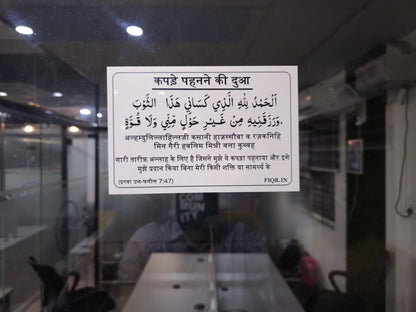 कपड़े पहनने की दुआ
اَلْحَمْدُ لِلّٰهِ الَّذِي كَسَانِي هَذَا الثَّوْبَ
وَرَزَقَنِيهِ مِنْ غَيْرِ حَوْلٍ مِنِّي وَلَا قُوَّةٍ.
अल्हम्दुलिल्लाहिल्लज़ी कसानी हाज़स्सौबा व रज़कनिहि
मिन गैरी हवलिम मिन्नी वला कुव्वह
सारी तारीफ़ अल्लाह के लिए है जिसने मुझे ये कपड़ा पहनाया और इसे
मुझे प्रदान किया बिना मेरी किसी शक्ति या सामर्थ्य के
(इरवा उल-घलील 7:47)
FIQR.IN
COM
MUN
ITY